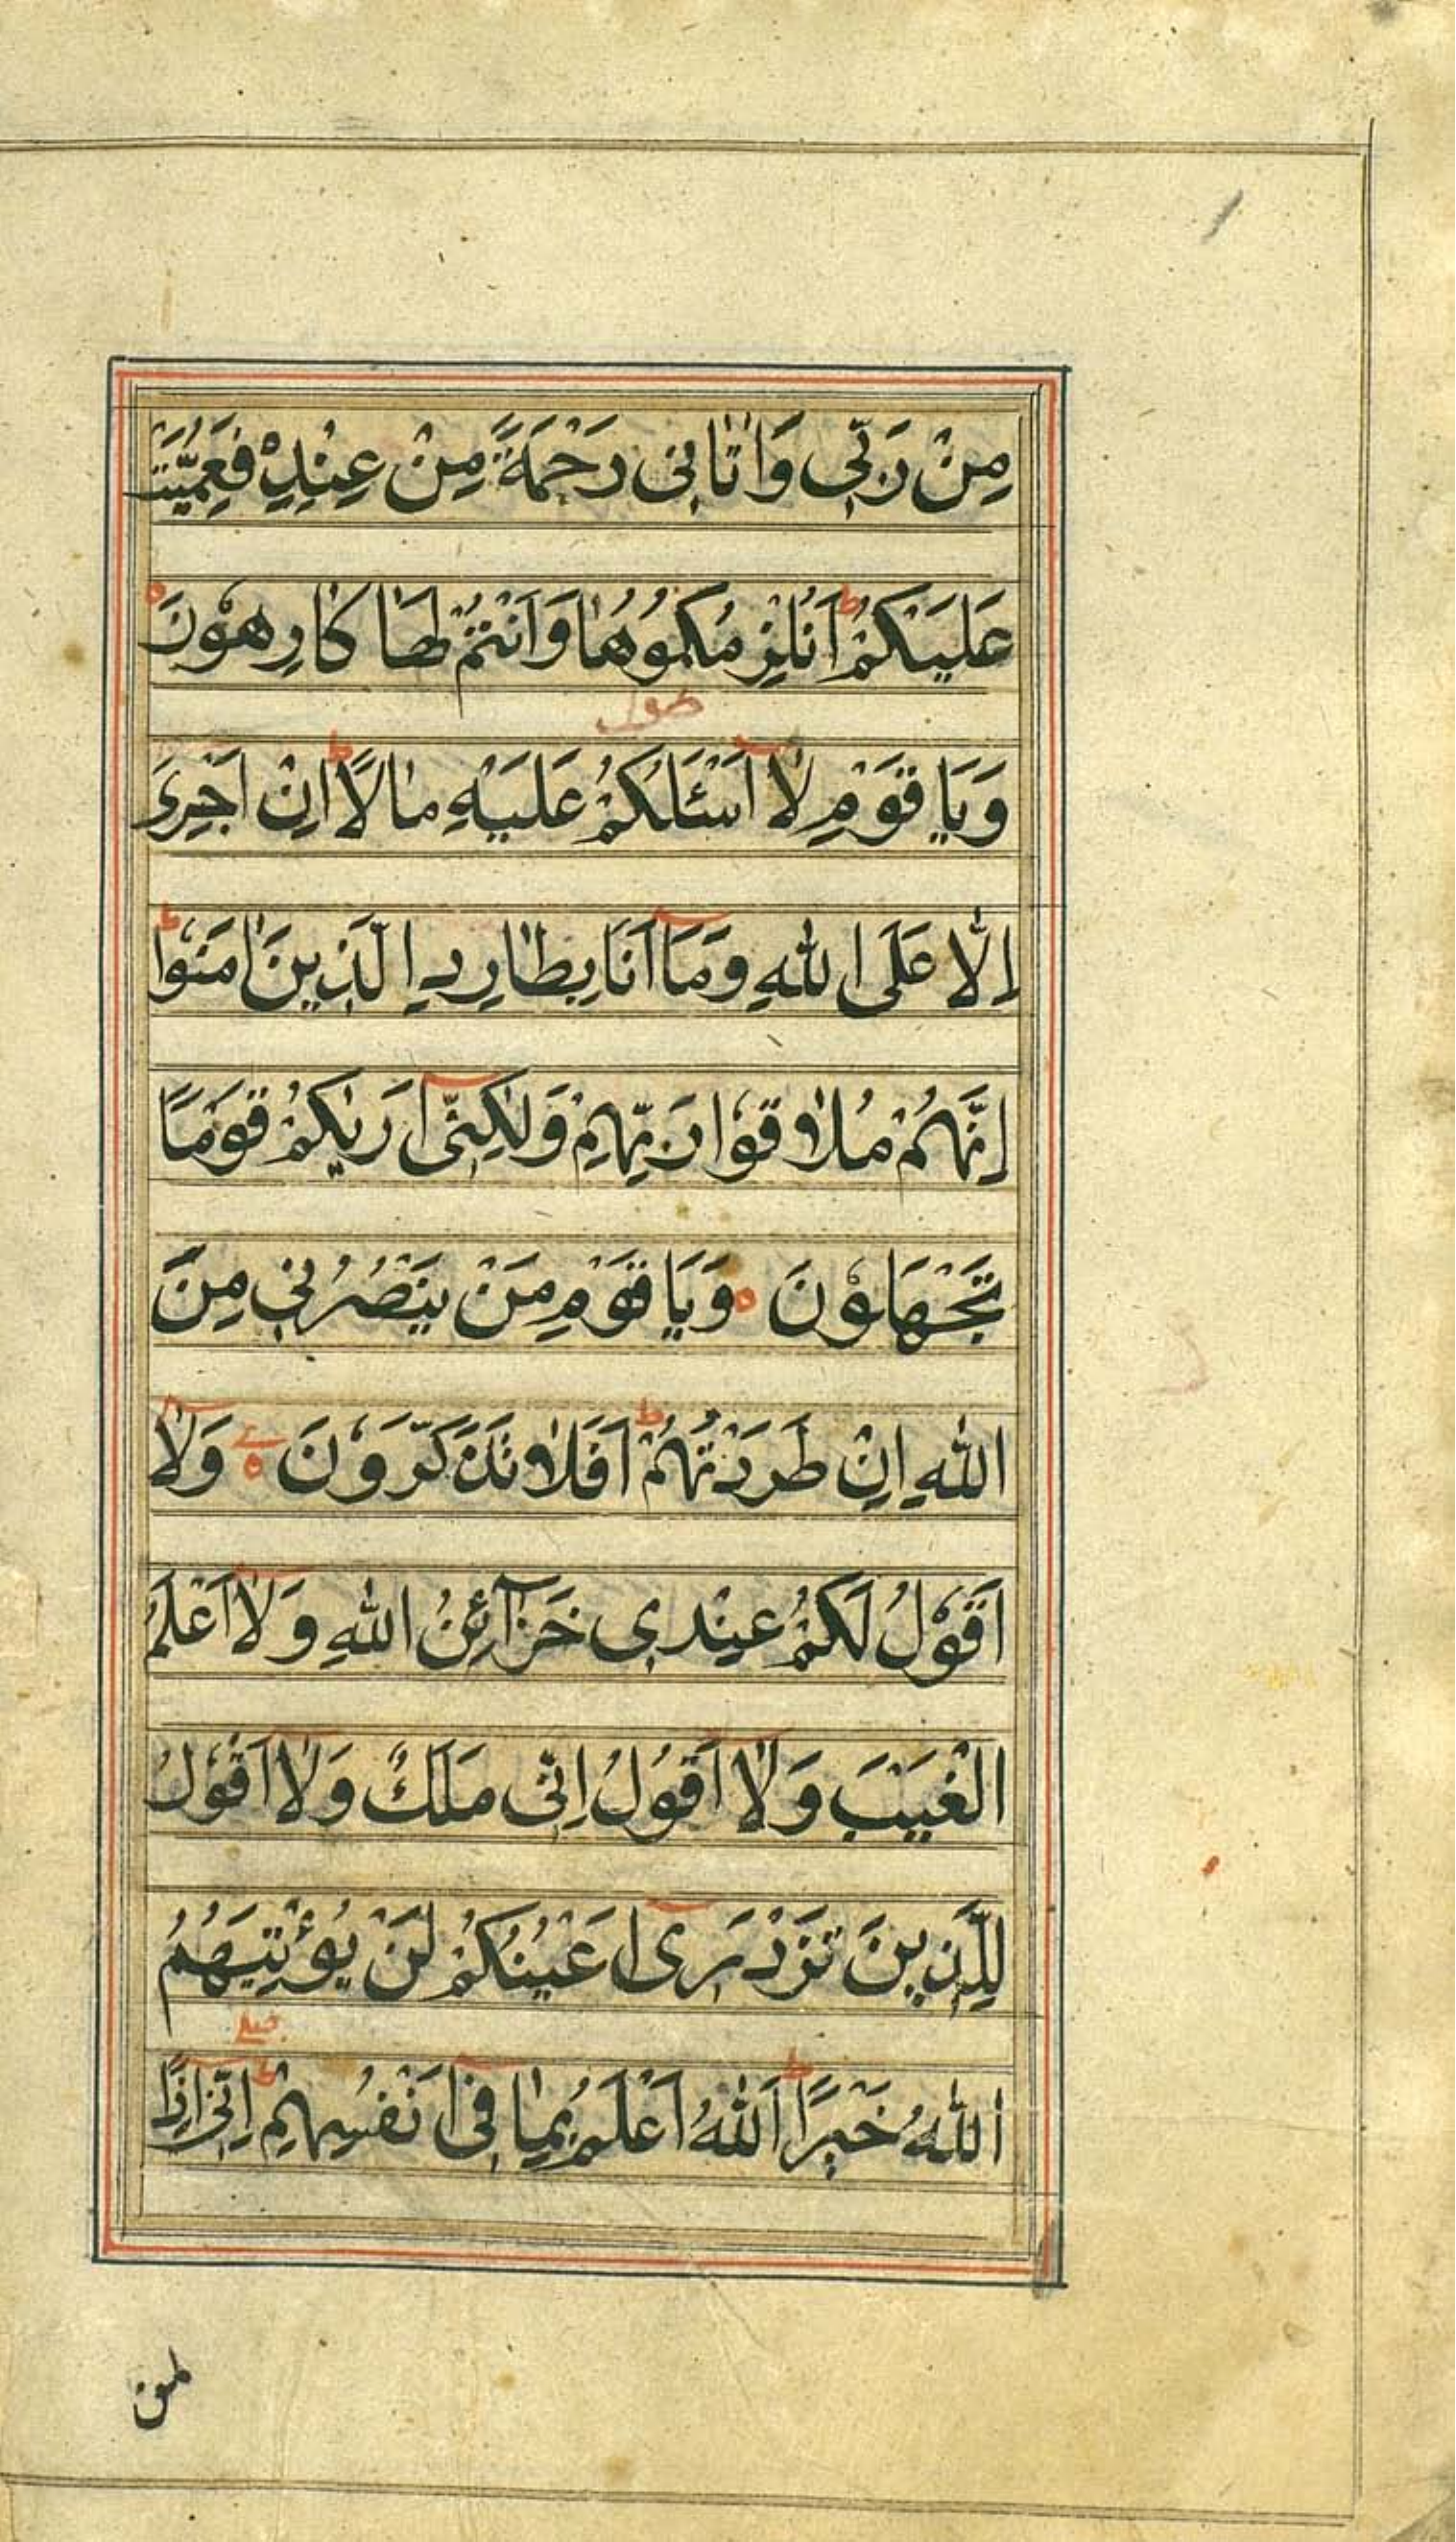 مِنْ رَبّٖى وَاٰتَانٖى رَحْمَةً مِنْ عِنْدِهٖ فَعُمِّيَتْ
عَلَيْكُمْ ط اَنُلْزِمُكُمُوْهَا وَاَنْتُمْ لَهَا كَارِهُوْنَ ه
وَيَا قَوْمِ لَاۤ اَسْئَلُكُمْ عَلَيْهِ مَالًا ط اِنْ اَجْرِىَ
اِلَّا عَلَى اللّٰهِ وَمَاۤ اَنَا بِطَارِدِ الَّذٖينَ اٰمَنُوْا ط
اِنَّهُمْ مُلَاقُوْا رَبِّهِمْ وَلٰكِنّٖىۤ اَرٰيكُمْ قَوْمًا
تَجْهَلُوْنَ ه وَيَا قَوْمِ مَنْ يَنْصُرُنٖى مِنَ
اللّٰهِ اِنْ طَرَدْتُهُمْ ط اَفَلَا تَذَكَّرُوْنَ ه وَلَاۤ
اَقُوْلُ لَكُمْ عِنْدٖى خَزَاۤئِنُ اللّٰهِ وَلَاۤ اَعْلَمُ
الْغَيْبَ وَلَاۤ اَقُوْلُ اِنّٖى مَلَكٌ وَلَاۤ اَقُوْلُ
لِلَّذٖينَ تَزْدَرٖىۤ اَعْيُنُكُمْ لَنْ يُؤْتِيَهُمُ
اللّٰهُ خَيْرًا ط اَللّٰهُ اَعْلَمُ بِمَا فٖىۤ اَنْفُسِهِمْ اِنّٖىۤ اِذًا
لمن